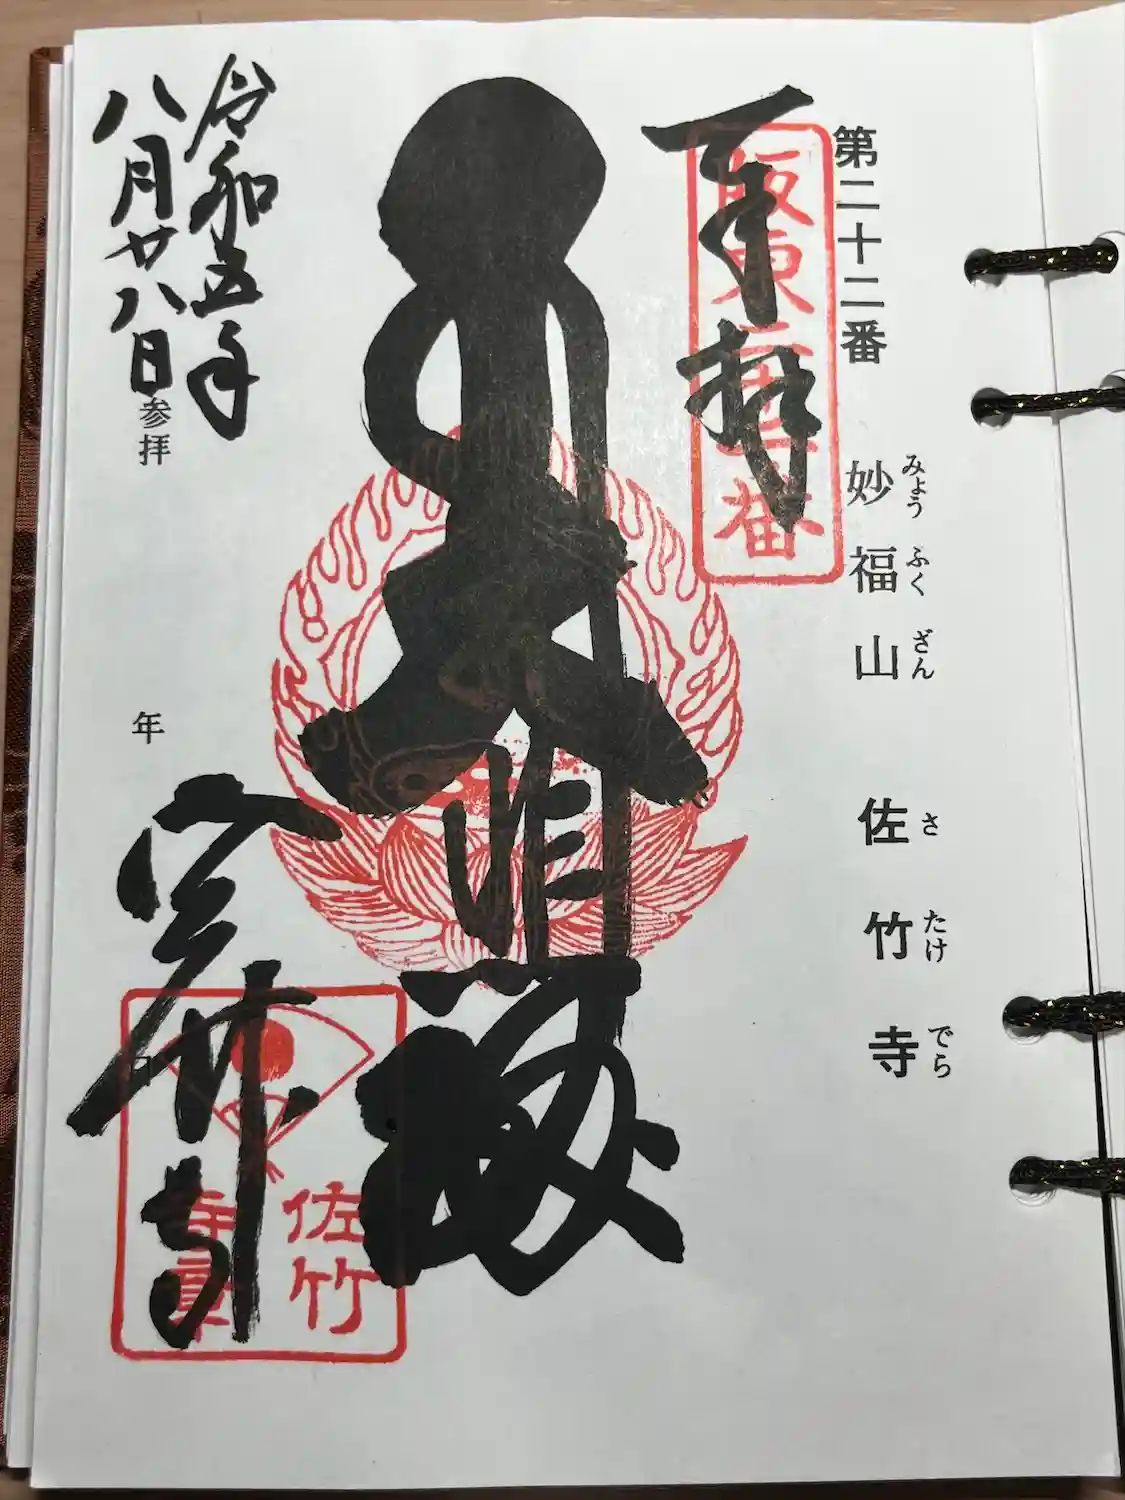 第二十二番 妙福山 佐竹寺
みょう ふく ざん さ たけ でら
奉拝
坂東
番
令和五年
八月廿八日参拝
年
佐竹寺
佐竹
寺章